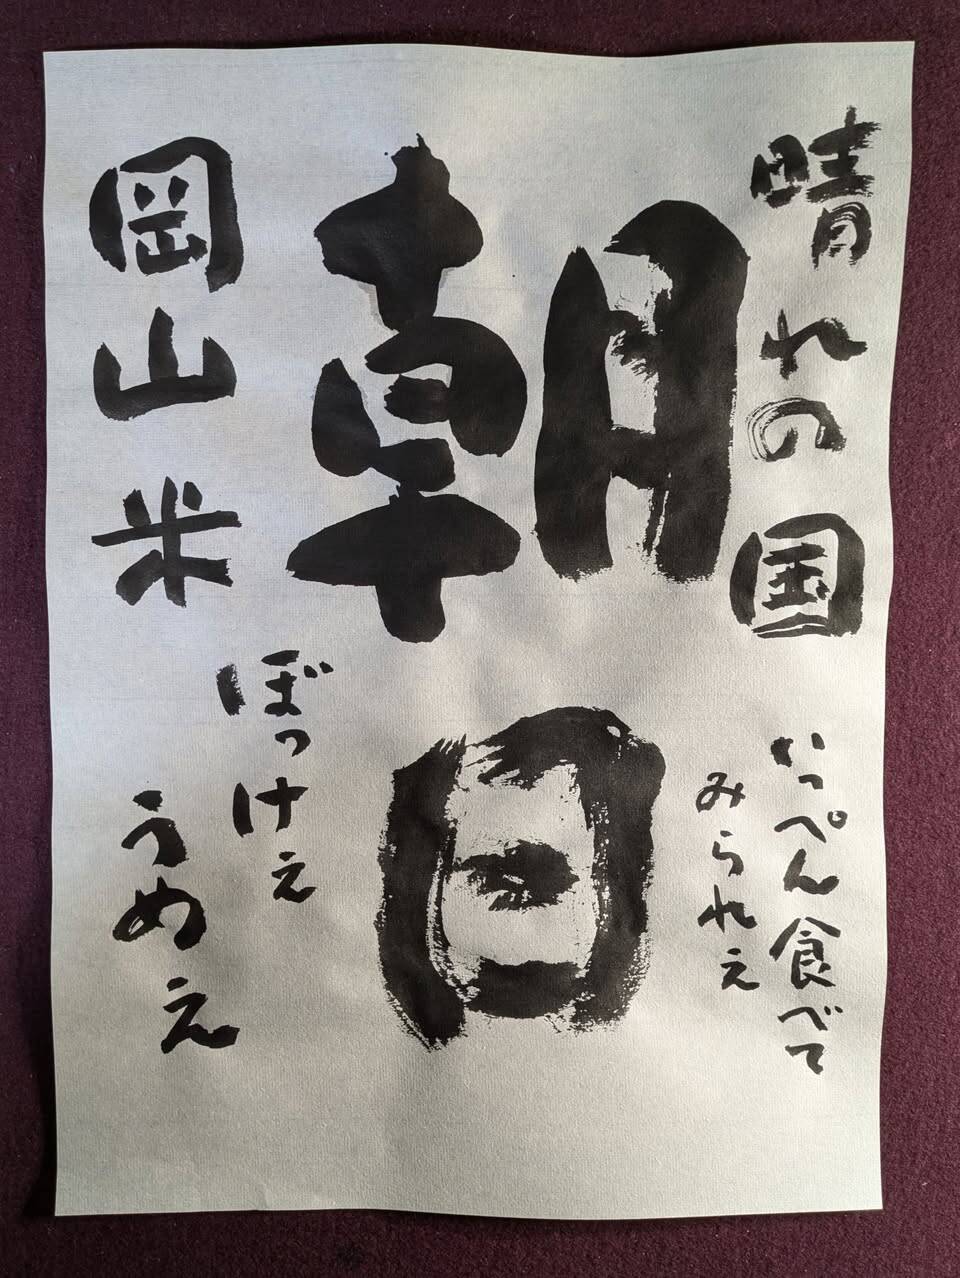 晴れの国
いっぺん食べて
みられえ
朝日
岡山米
ぼっけえ
うめえ